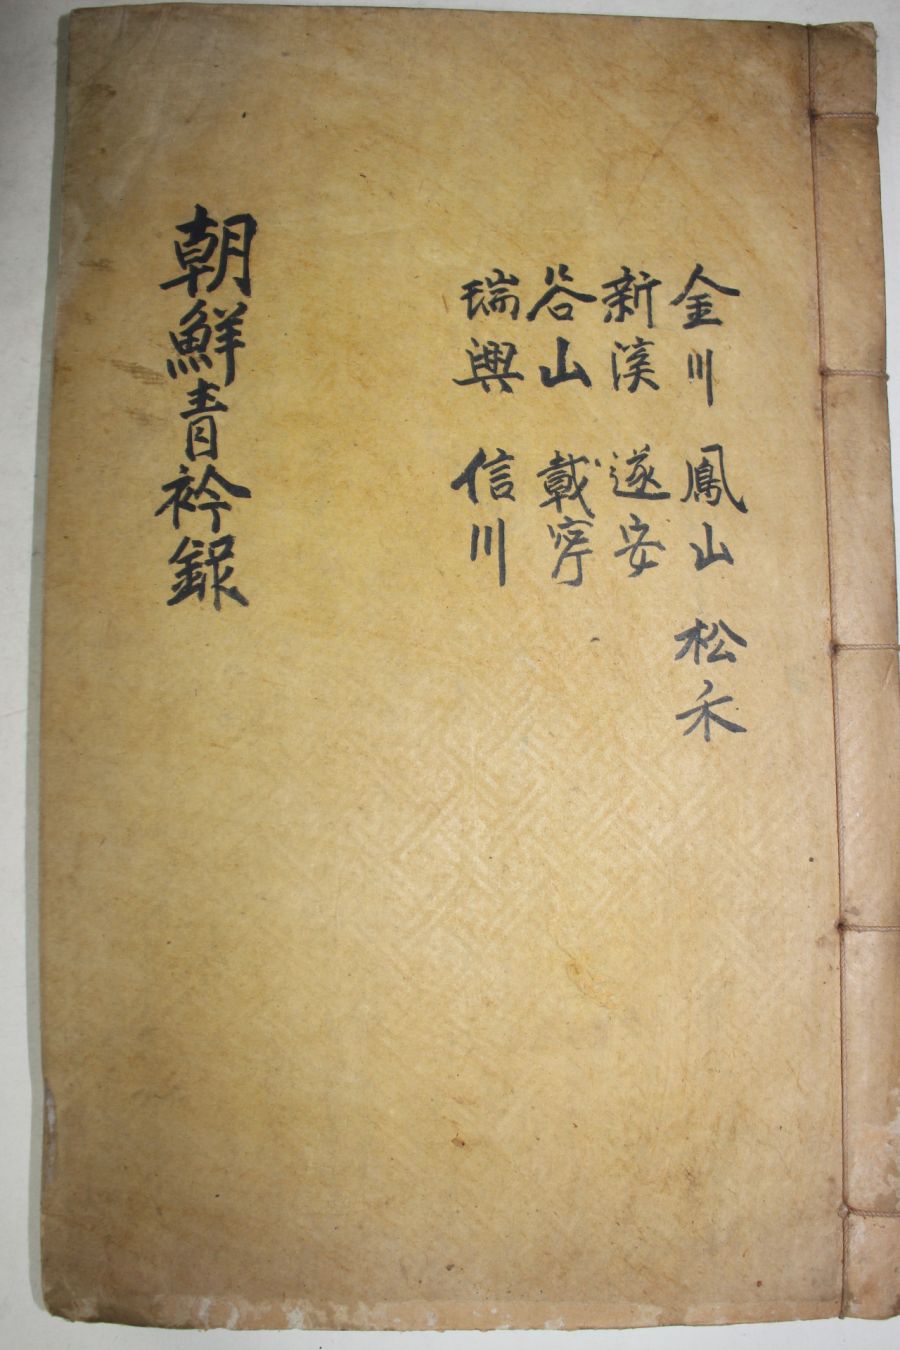 金川 鳳山 松禾
新溪 遂安
谷山 載寧
瑞興 信川
朝鮮青衿録